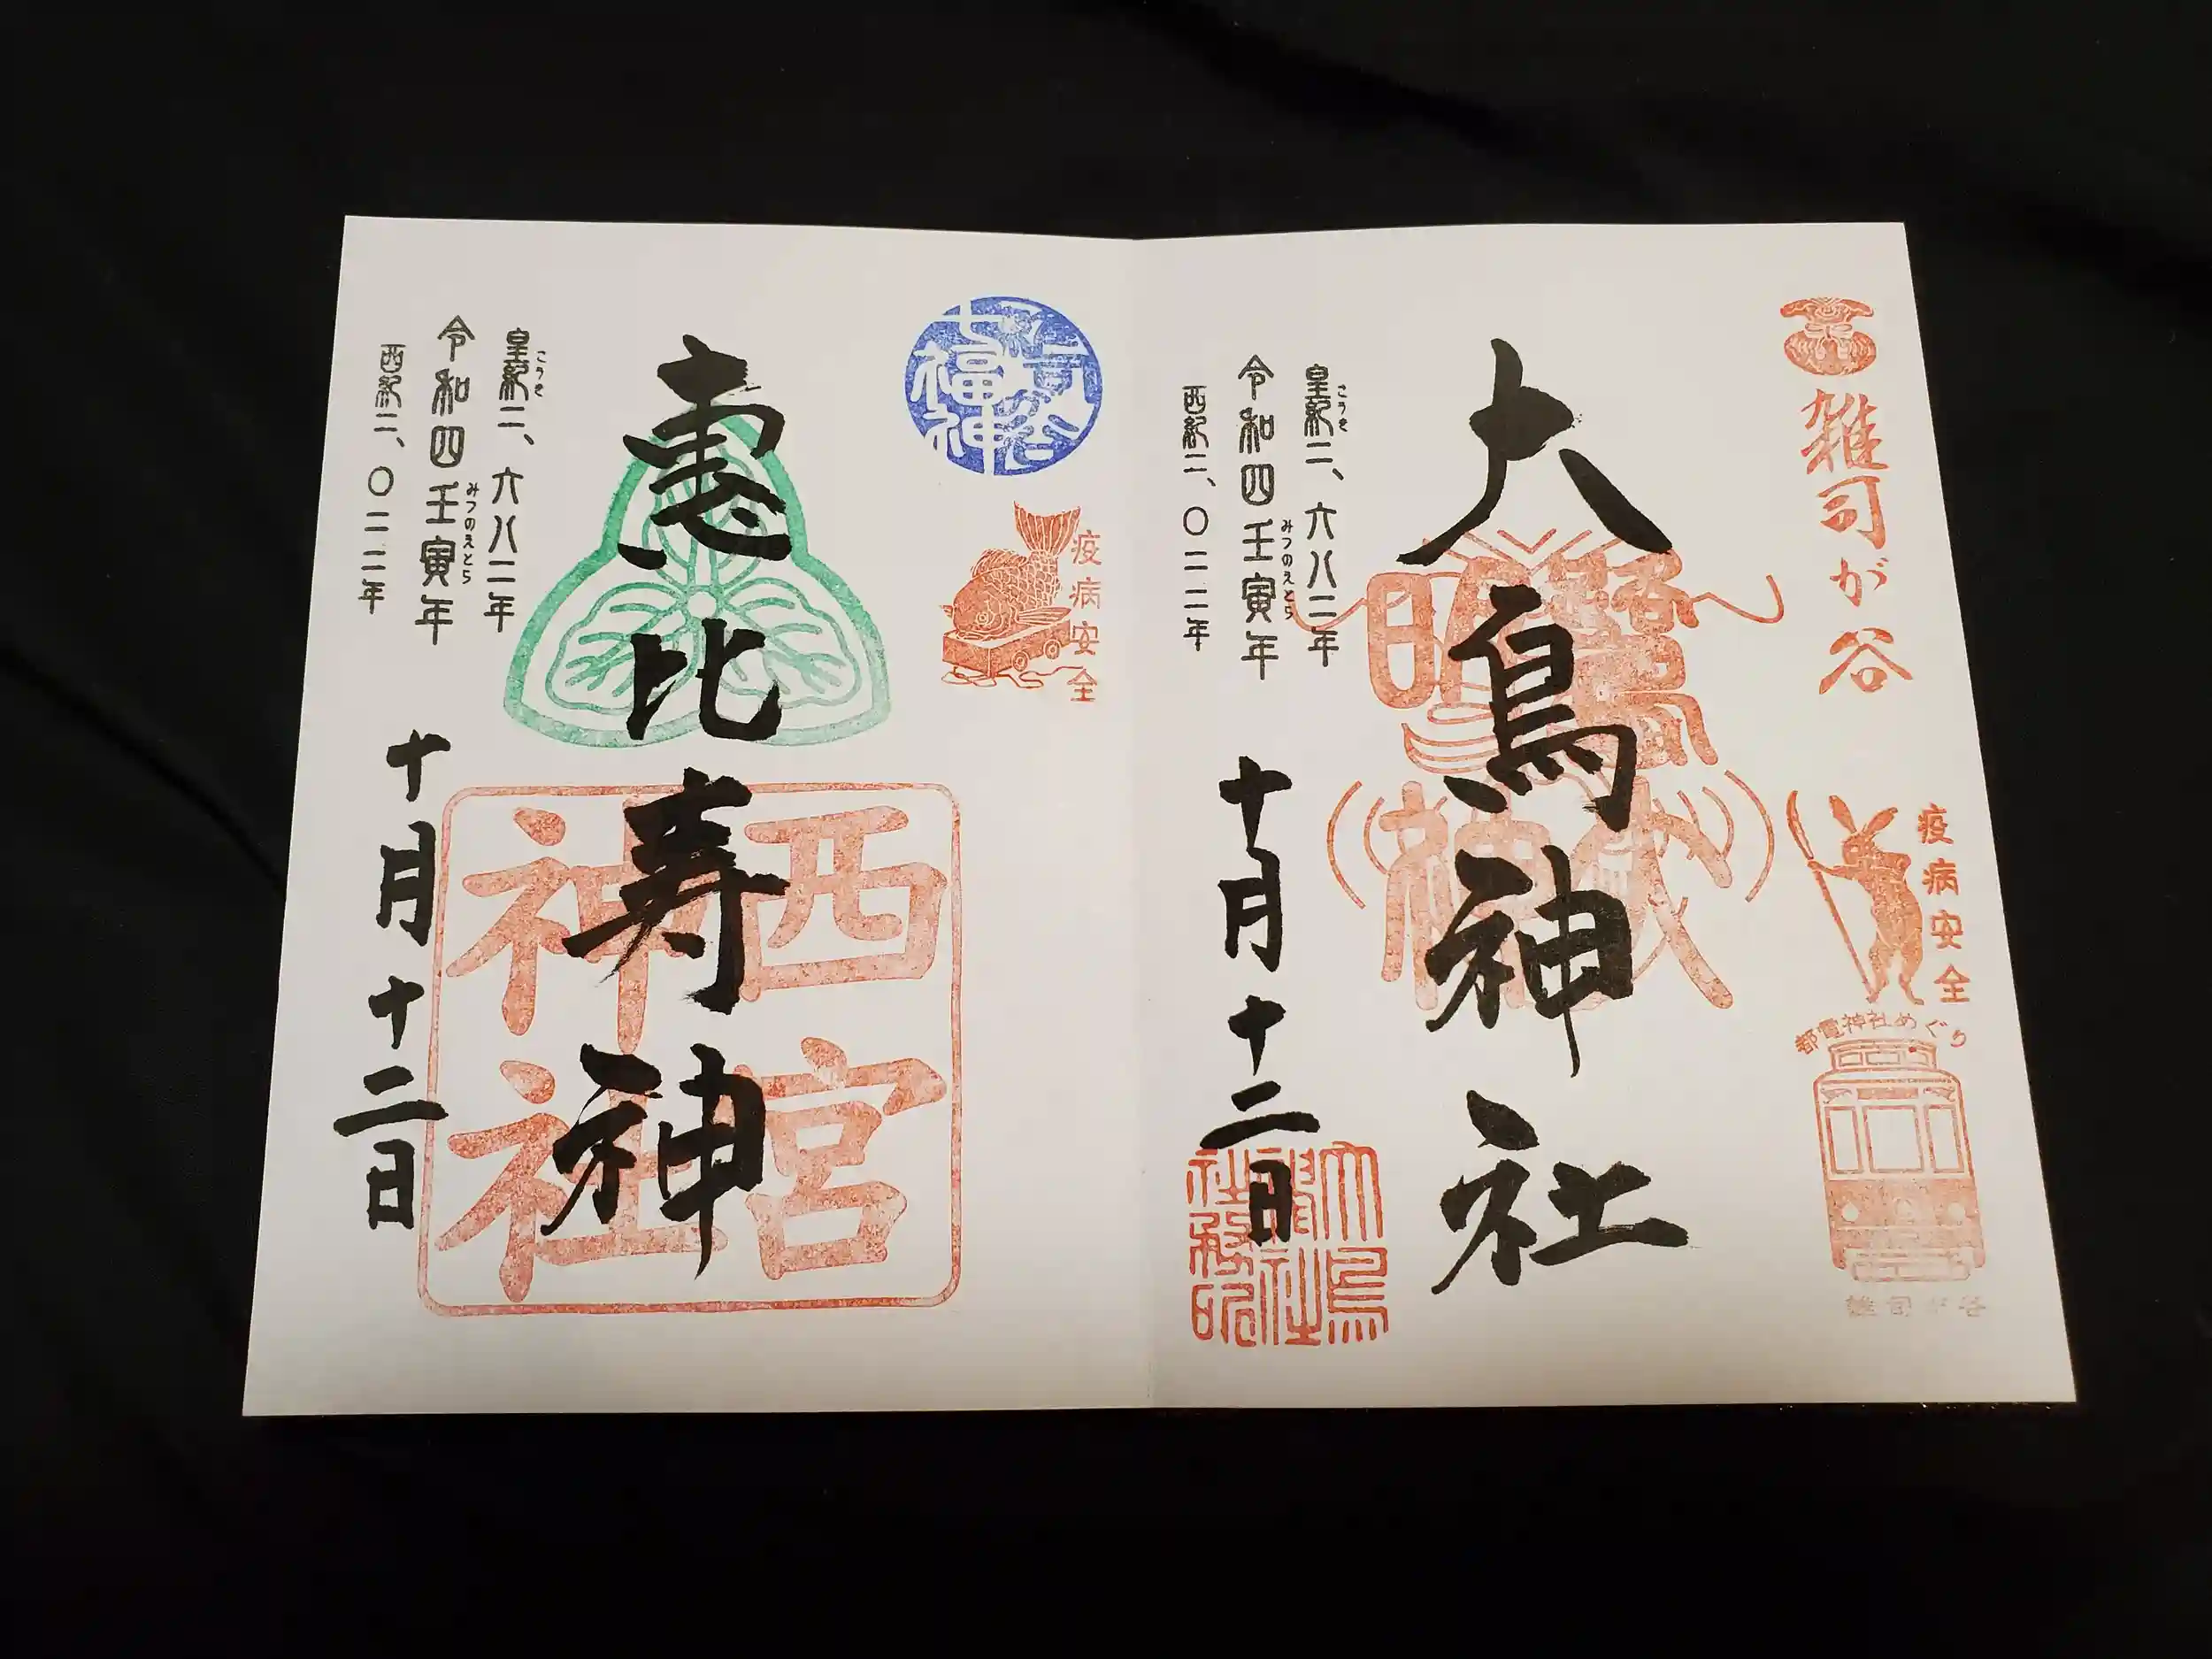 雑司が谷
疫病安全
都電神社めぐり
雑司が谷
大鳥神社
皇紀二、六八二年
こうき
令和四壬寅年
みづのえとら
西紀二、〇二二年
十月十二日
七福神
疫病安全
恵比寿神
西宮
神社
皇紀二、六八二年
こうき
令和四壬寅年
みづのえとら
西紀二、〇二二年
十月十二日